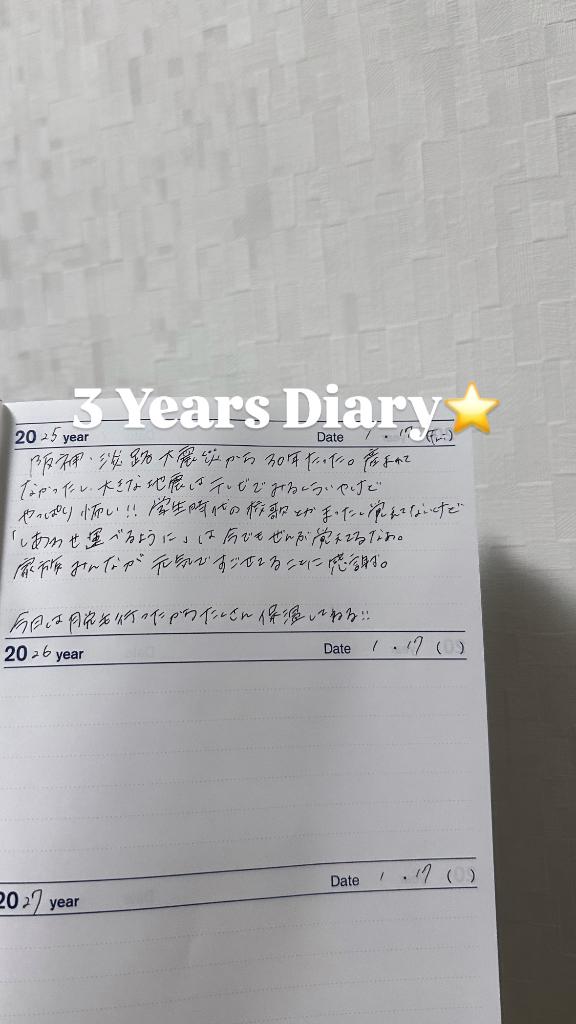 3 Years Diary⭐
2025 year Date 1.17 (Fri.)
阪神・淡路大震災から30年たった。産まれて
なかったし、大きな地震はテレビでみるくらいやけど
やっぱり怖い!! 学生時代の校歌とかまったく覚えてないけど
「しあわせ運べるように」は今でもぜんぶ覚えてるなぁ。
家族みんなが元気ですごせてることに感謝。
今日は脱毛行ったからたくさん保湿してねる!!
2026 year Date 1.17 ( )
2027 year Date 1.17 ( )